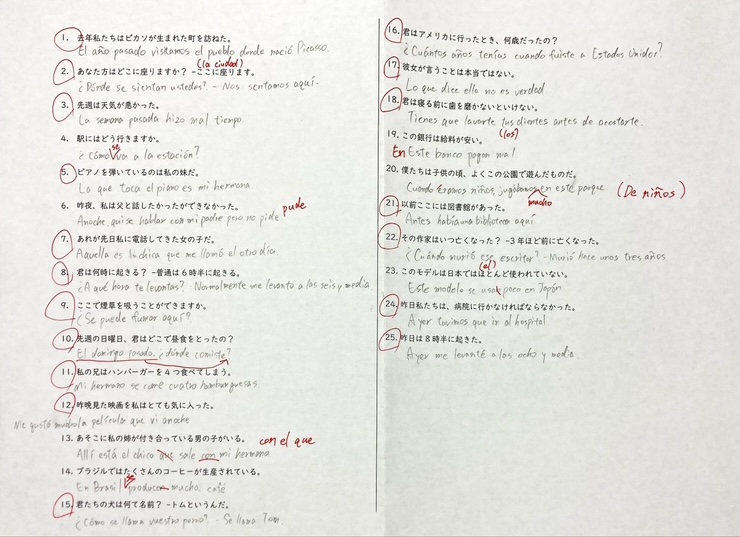 1. 去年私たちはピカソが生まれた町を訪ねた。
El año pasado visitamos el pueblo donde nació Picasso.
(la ciudad)
2. あなた方はどこに座りますか？ -ここに座ります。
¿Dónde se sientan ustedes? - Nos sentamos aquí.
3. 先週は天気が悪かった。
La semana pasada hizo mal tiempo
4. 駅にはどう行きますか。
se
¿Cómo va a la estación?
5. ピアノを弾いているのは私の妹だ。
La que toca el piano es mi hermana
6. 昨夜、私は父と話したかったができなかった。
pude
Anoche quise hablar con mi padre pero no pide
7. あれが先日私に電話してきた女の子だ。
Aquella es la chica que me llamó el otro día.
8. 君は何時に起きる？ -普通は6時半に起きる。
¿A qué hora te levantas? Normalmente me levanto a las seis y media
9. ここで煙草を吸うことができますか。
¿Se puede fumar aquí?
10. 先週の日曜日、君はどこで昼食をとったの？
El domingo pasado, ¿dónde comiste?
11. 私の兄はハンバーガーを4つ食べてしまう。
Mi hermano se come cuatro hamburguesas.
12. 昨晩見た映画を私はとても気に入った。
Me gustó mucho la película que vi anoche
13. あそこに私の姉が付き合っている男の子がいる。
con el que
Allí está el chico que sale con mi hermana
14. ブラジルではたくさんのコーヒーが生産されている。
se
En Brasil producen mucho café
15. 君たちの犬は何て名前？ -トムというんだ。
¿Cómo se llama vuestro perro? - Se llama Tom
16. 君はアメリカに行ったとき、何歳だったの？
¿Cuántos años tenías cuando fuiste a Estados Unidos?
17. 彼女が言うことは本当ではない。
Lo que dice ella no es verdad
18. 君は寝る前に歯を磨かないといけない。
Tienes que lavarte tus dientes antes de acostarte.
(los)
19. この銀行は給料が安い。
En Este banco pagan mal
20. 僕たちは子供の頃、よくこの公園で遊んだものだ。
Cuando éramos niños jugábamos en este parque
(De niños)
mucho
21. 以前ここには図書館があった。
Antes había una biblioteca aquí.
22. その作家はいつ亡くなった？ -3年ほど前に亡くなった。
¿Cuándo murió ese escritor? - Murió hace unos tres años
(el)
23. このモデルは日本ではほとんど使われていない。
Este modelo se usa poco en Japón
24. 昨日私たちは、病院に行かなければならなかった。
Ayer tuvimos que ir al hospital
25. 昨日は8時半に起きた。
Ayer me levanté a las ocho y media